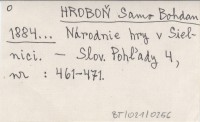 O
HROBOŇ Samo Bohdan
1884... Národnie hry v Siel-
nici. – Slov. Pohľady 4,
nr : 461-471.
BT/0211/0256